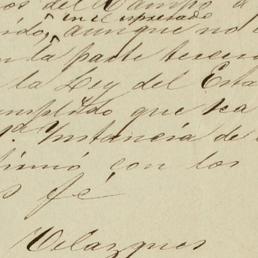 os del Campo d
en el expresado
ido, aunque no
la parte tercera
la Ley del Esta
cumplido que sea
1ª Instancia de
firmó con los
s fé
Velazques